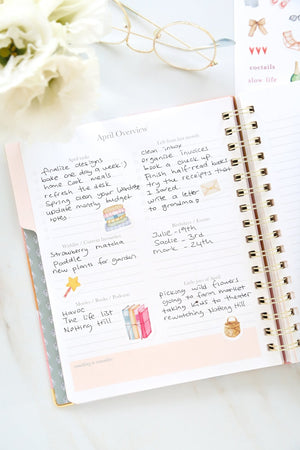 April Overview
April tasks
finalise designs
bake one day a week :)
home cook meals
refresh the desk
Spring clean your wardrobe
update monthly budget
notes
Left from last month
clean inbox
organise invoices
book a check up
finish half-read books
try the receipts that
I saved
write a letter
to grandma
Wishlist /
Strawberry matcha
Paddle
new plants for garden
Birthdays / Events
Julie - 19th
Sadie - 3rd
mark - 24th
Movies / Books / Podcasts
HAVOC
The life list
Notting hill
Little joys of April
Picking wild flowers
going to farm market
taking kids to theater
rewatching Notting Hill
something to remember
coctails
slow life